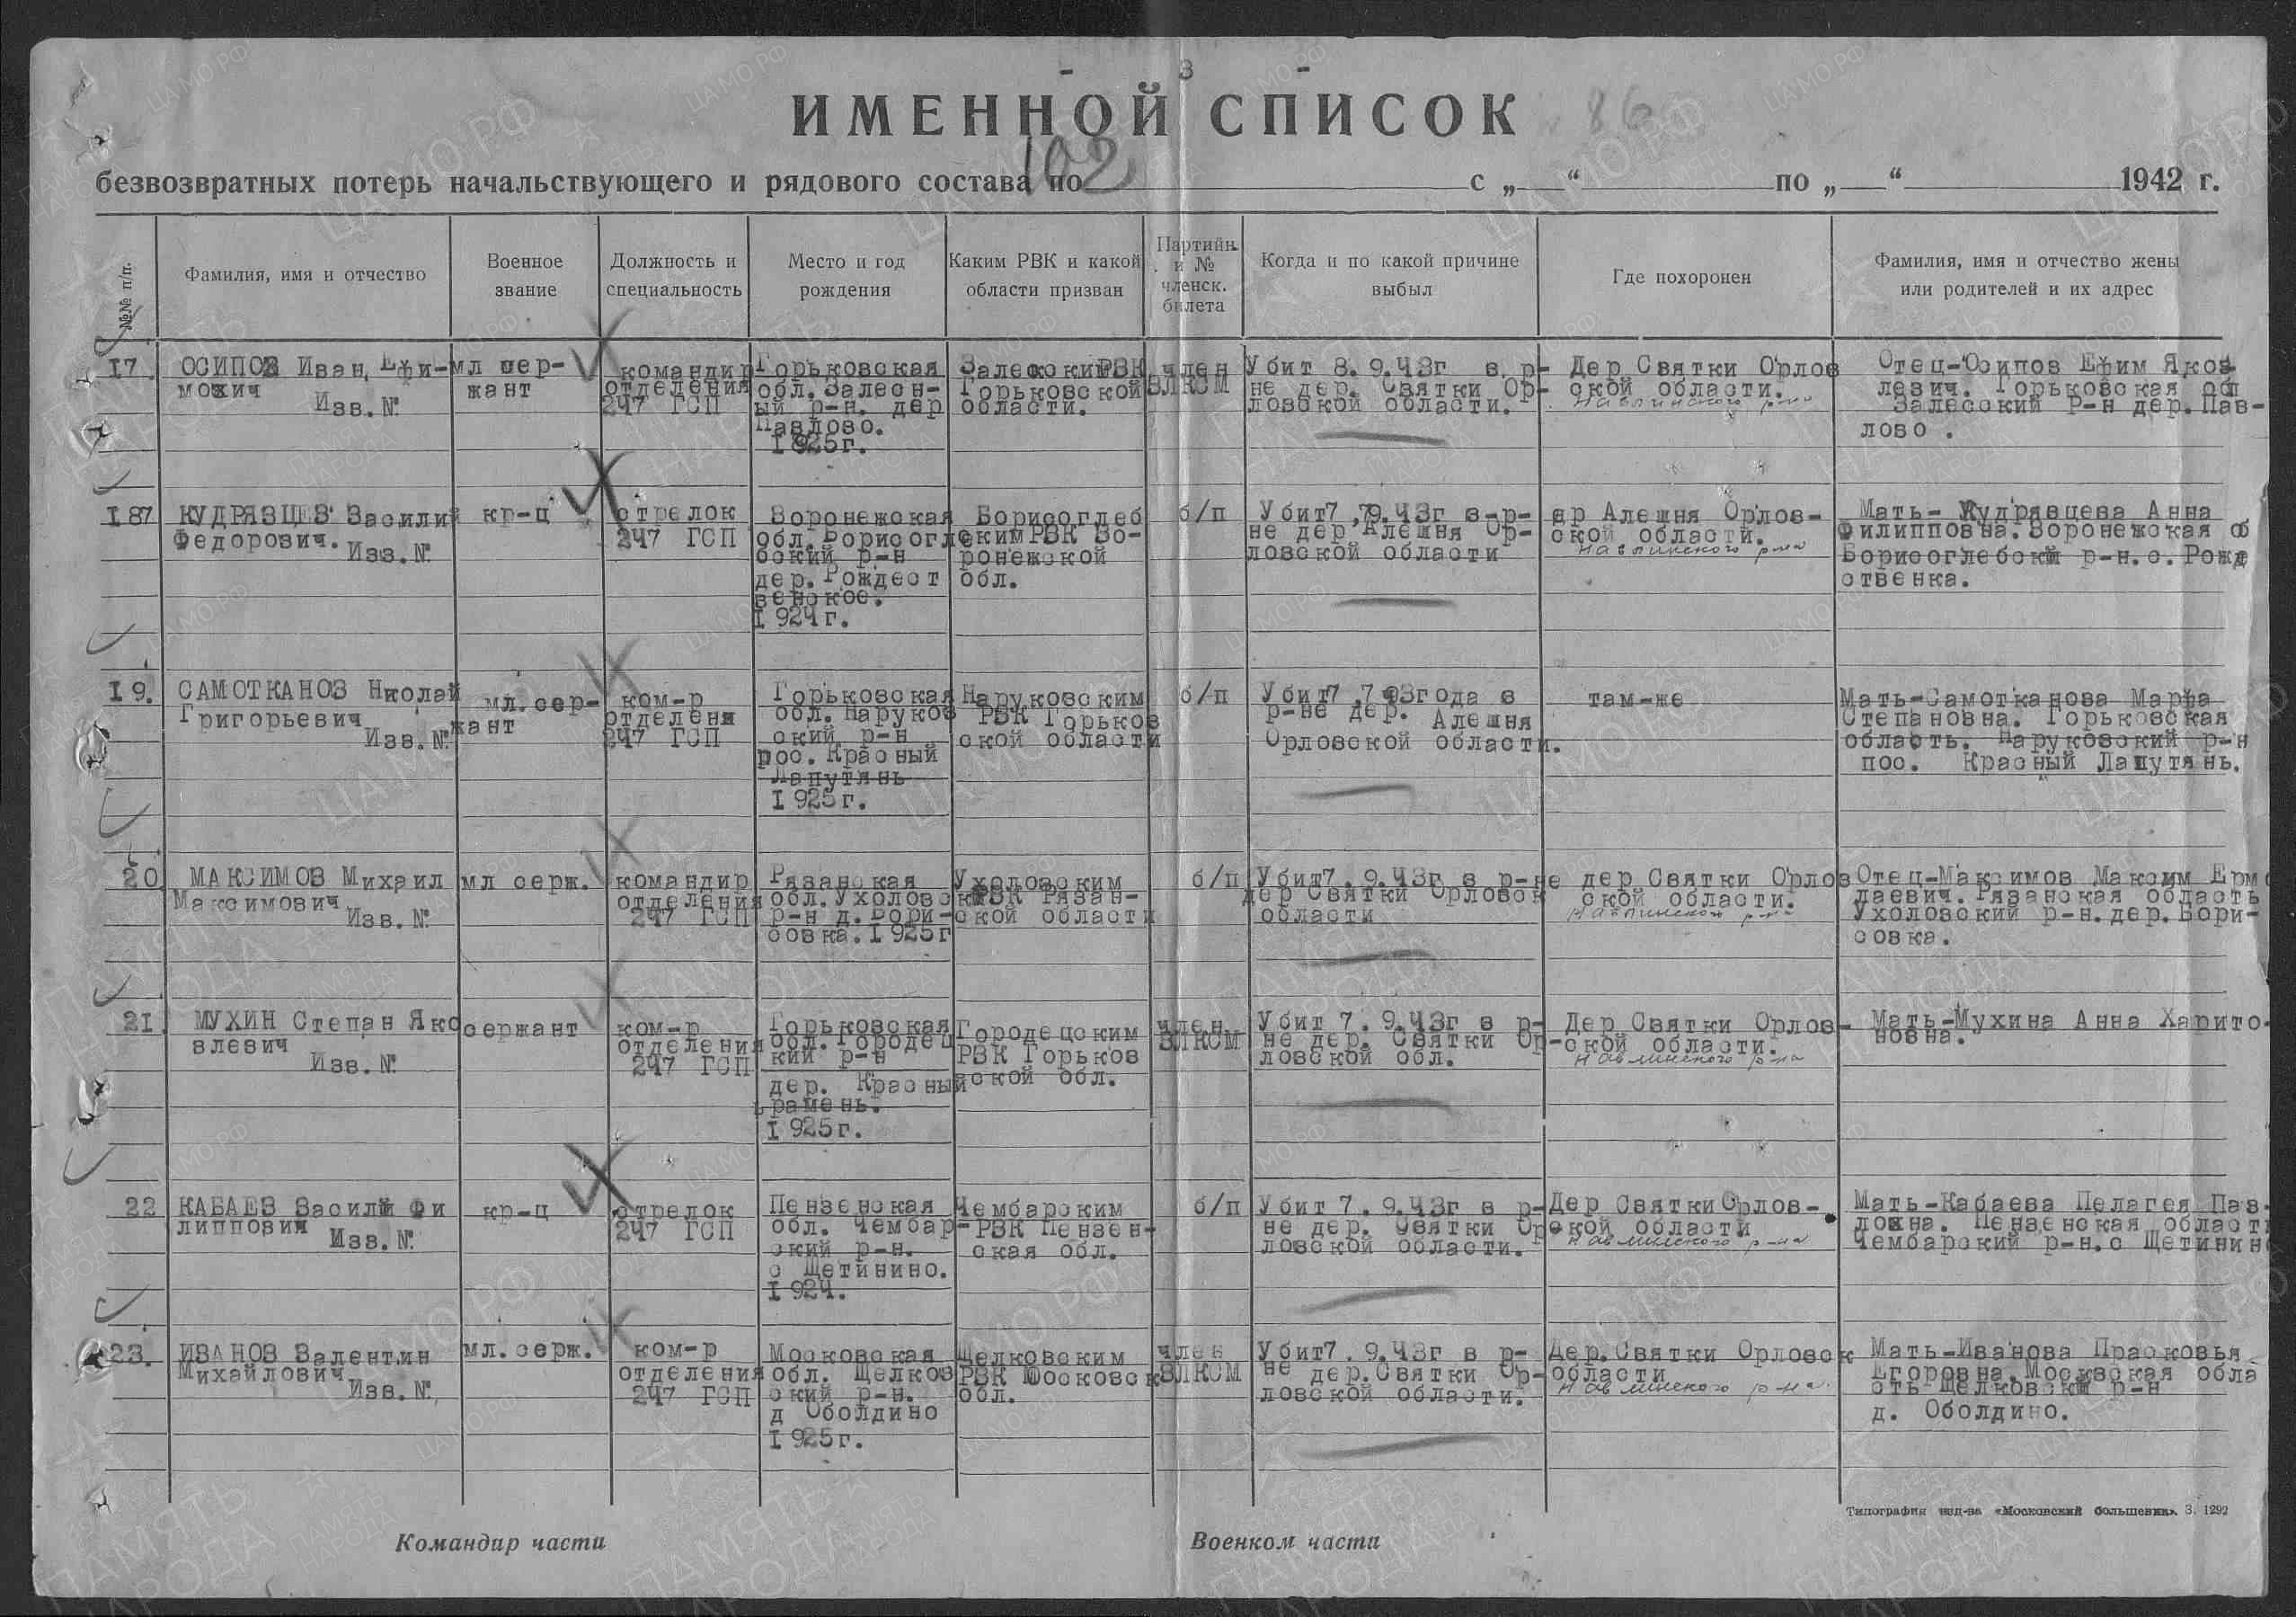 - 3 -
ИМЕННОЙ СПИСОК
86
102
безвозвратных потерь начальствующего и рядового состава по с „ “ по „ “ 1942 г.
№№ п/п.
Фамилия, имя и отчество
Военное
звание
Должность и
специальность
Место и год
рождения
Каким РВК и какой
области призван
Партийн.
и №
членск.
билета
Когда и по какой причине
выбыл
Где похоронен
Фамилия, имя и отчество жены
или родителей и их адрес
17.
ОСИПОВ Иван Ефи-
мович
Изв.№
мл сер-
жант
командир
отделения
247 ГСП
Горьковская
обл. Залесн-
ый р-н. дер
Павлово.
I925г.
ЗалесскимРВК
Горьковской
области.
член
ВЛКСМ
Убит 8.9.43г в р-
не дер. Святки Ор-
ловской области.
Дер Святки Орлов
ской области.
Навлинского р-на
Отец-Осипов Ефим Яков
левич. Горьковская обл
Залесский Р-н дер.Пав-
лово .
I87
КУДРЯВЦЕВ Василий
Федорович.
Изв.№
кр-ц
стрелок
247 ГСП
Воронежская
обл.Борисогле
бский р-н
дер.Рождест
венское.
I924г.
Борисоглеб
скимРВК Во-
ронежской
обл.
б/п
Убит7.9.43г в-р-
не дер Алешня Ор-
ловской области
др Алешня Орлов-
ской области.
Навлинского р-на
Мать- Кудрявцева Анна
Филипповна.Воронежская об
Борисоглебский р-н.с.Рожд
ственка.
I9.
САМОТКАНОВ Николай
Григорьевич
Изв.№
мл.сер-
жант
ком-р
отделени
247 ГСП
Горьковская
обл.Наруков
ский р-н
рос.Красный
Лапутянь
I925г.
Наруковским
РВК Горьков
ской области
б/п
Убит7 .7 93года в
р-не дер. Алешня
Орловской области.
там-же
Мать-Самотканова Марфа
Степановна. Горьковская
область. Наруковский р-н
пос. Красный Лапутянь.
20.
МАКСИМОВ Михаил
Максимович
Изв.№
мл серж.
командир
отделения
247 ГСП
Рязанская
обл.Ухоловск
р-н д.Бори-
совка.I925г
Ухоловским
РВК Рязан-
ской области
б/п
Убит7.9.43г в р-не
дер Святки Орловск
области
дер Святки Орлов
ской области.
Навлинского р-на
Отец-Максимов Максим Ермо
лаевич.Рязанская область
Ухоловский р-н.дер.Бори-
совка.
2I.
МУХИН Степан Яко
влевич
Изв.№
сержант
ком-р
отделения
247 ГСП
Горьковская
обл.Городец
кий р-н
дер. Красный
рамень.
I925г.
Городецким
РВК Горьков
ской обл.
член
ВЛКСМ
Убит 7.9.43г в р-
не дер. Святки Ор
ловской обл.
Дер Святки Орлов-
-ской области.
Навлинского р-на
Мать-Мухина Анна Харито-
новна.
22
КАБАЕВ Василий Фи
липпович
Изв.№
кр-ц
стрелок
247 ГСП
Пензенская
обл. Чембар-
ский р-н.
с Щетинино.
I924.
Чембарским
РВК Пензен-
ская обл.
б/п
Убит 7.9.43г в р-
не дер. Святки Ор
ловской области.
Дер СвяткиОрлов-
ской области
Навлинского р-на
Мать-Кабаева Пелагея Пав-
ловна. Пензенская област
Чембарский р-н.с Щетинин
23.
ИВАНОВ Валентин
Михайлович
Изв.№
мл.серж.
ком-р
отделения
247 ГСП
Московская
обл. Щелков
ский р-н.
д Оболдино
I925г.
Щелковским
РВК Московск
обл.
член
ВЛКСМ
Убит7.9.43г в р-
не дер.Святки Ор-
ловской области.
Дер.Святки Орловск
области
Навлинского р-на.
Мать-Иванова Прасковья
Егоровна.Москвская обла
сть Щелковский р-н
д. Оболдино.
Типография изд-ва «Московский большевик». З. 1292
Командир части
Военком части
ЦАМО.РФ
ПАМЯТЬ
НАРОДА